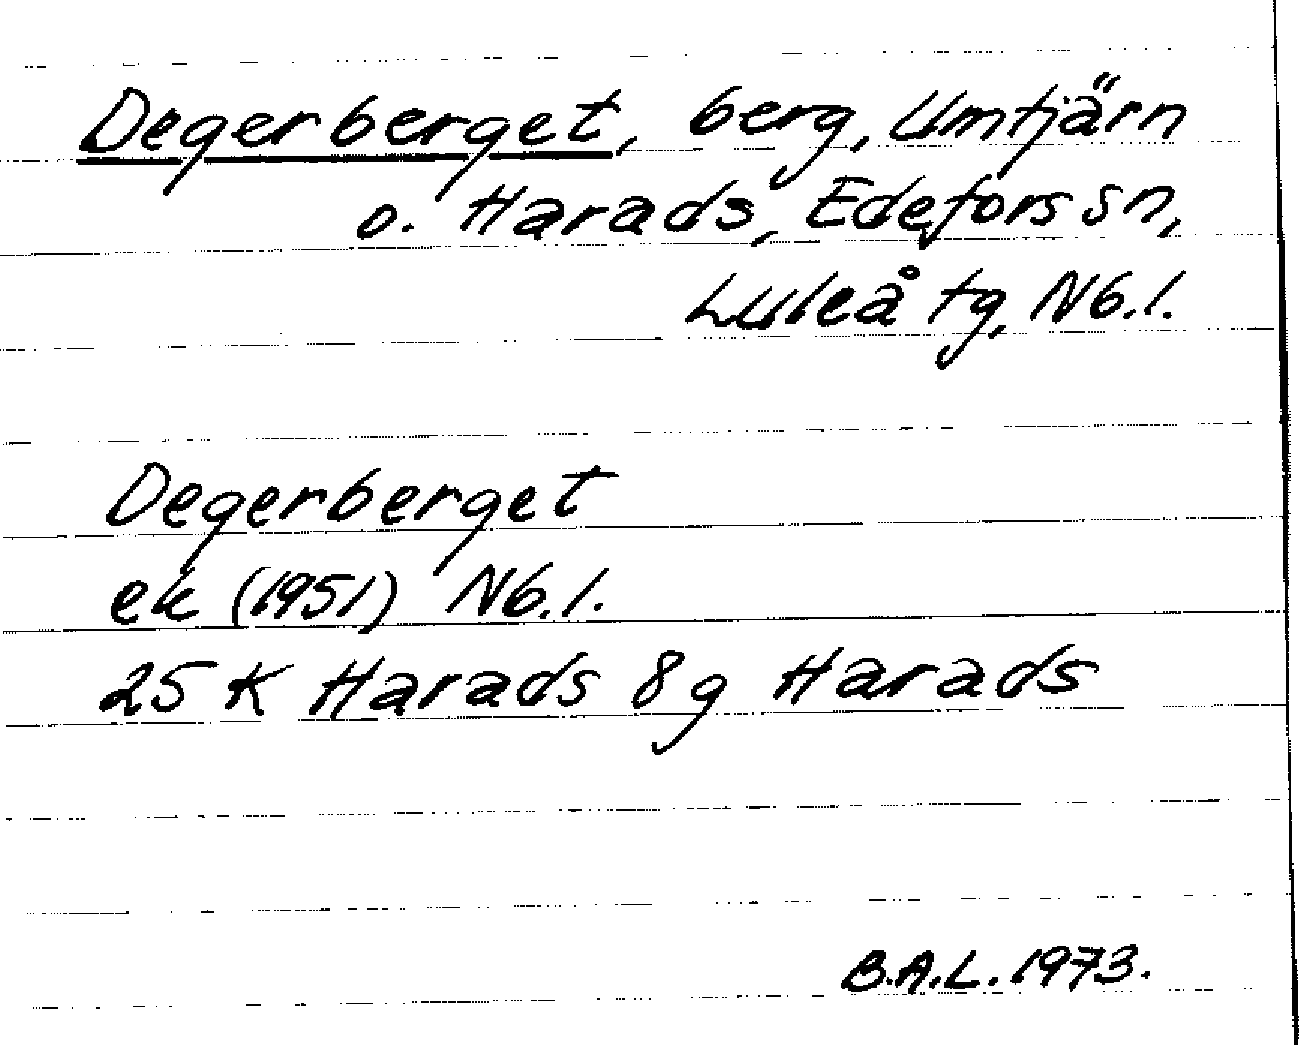 Degerberget, berg, Umtjärn
o. Harads, Edefors sn,
Luleå tg, Nb.l.
Degerberget
ek (1951) Nb.l.
25 K Harads 8g Harads
B.A.L. 1973.